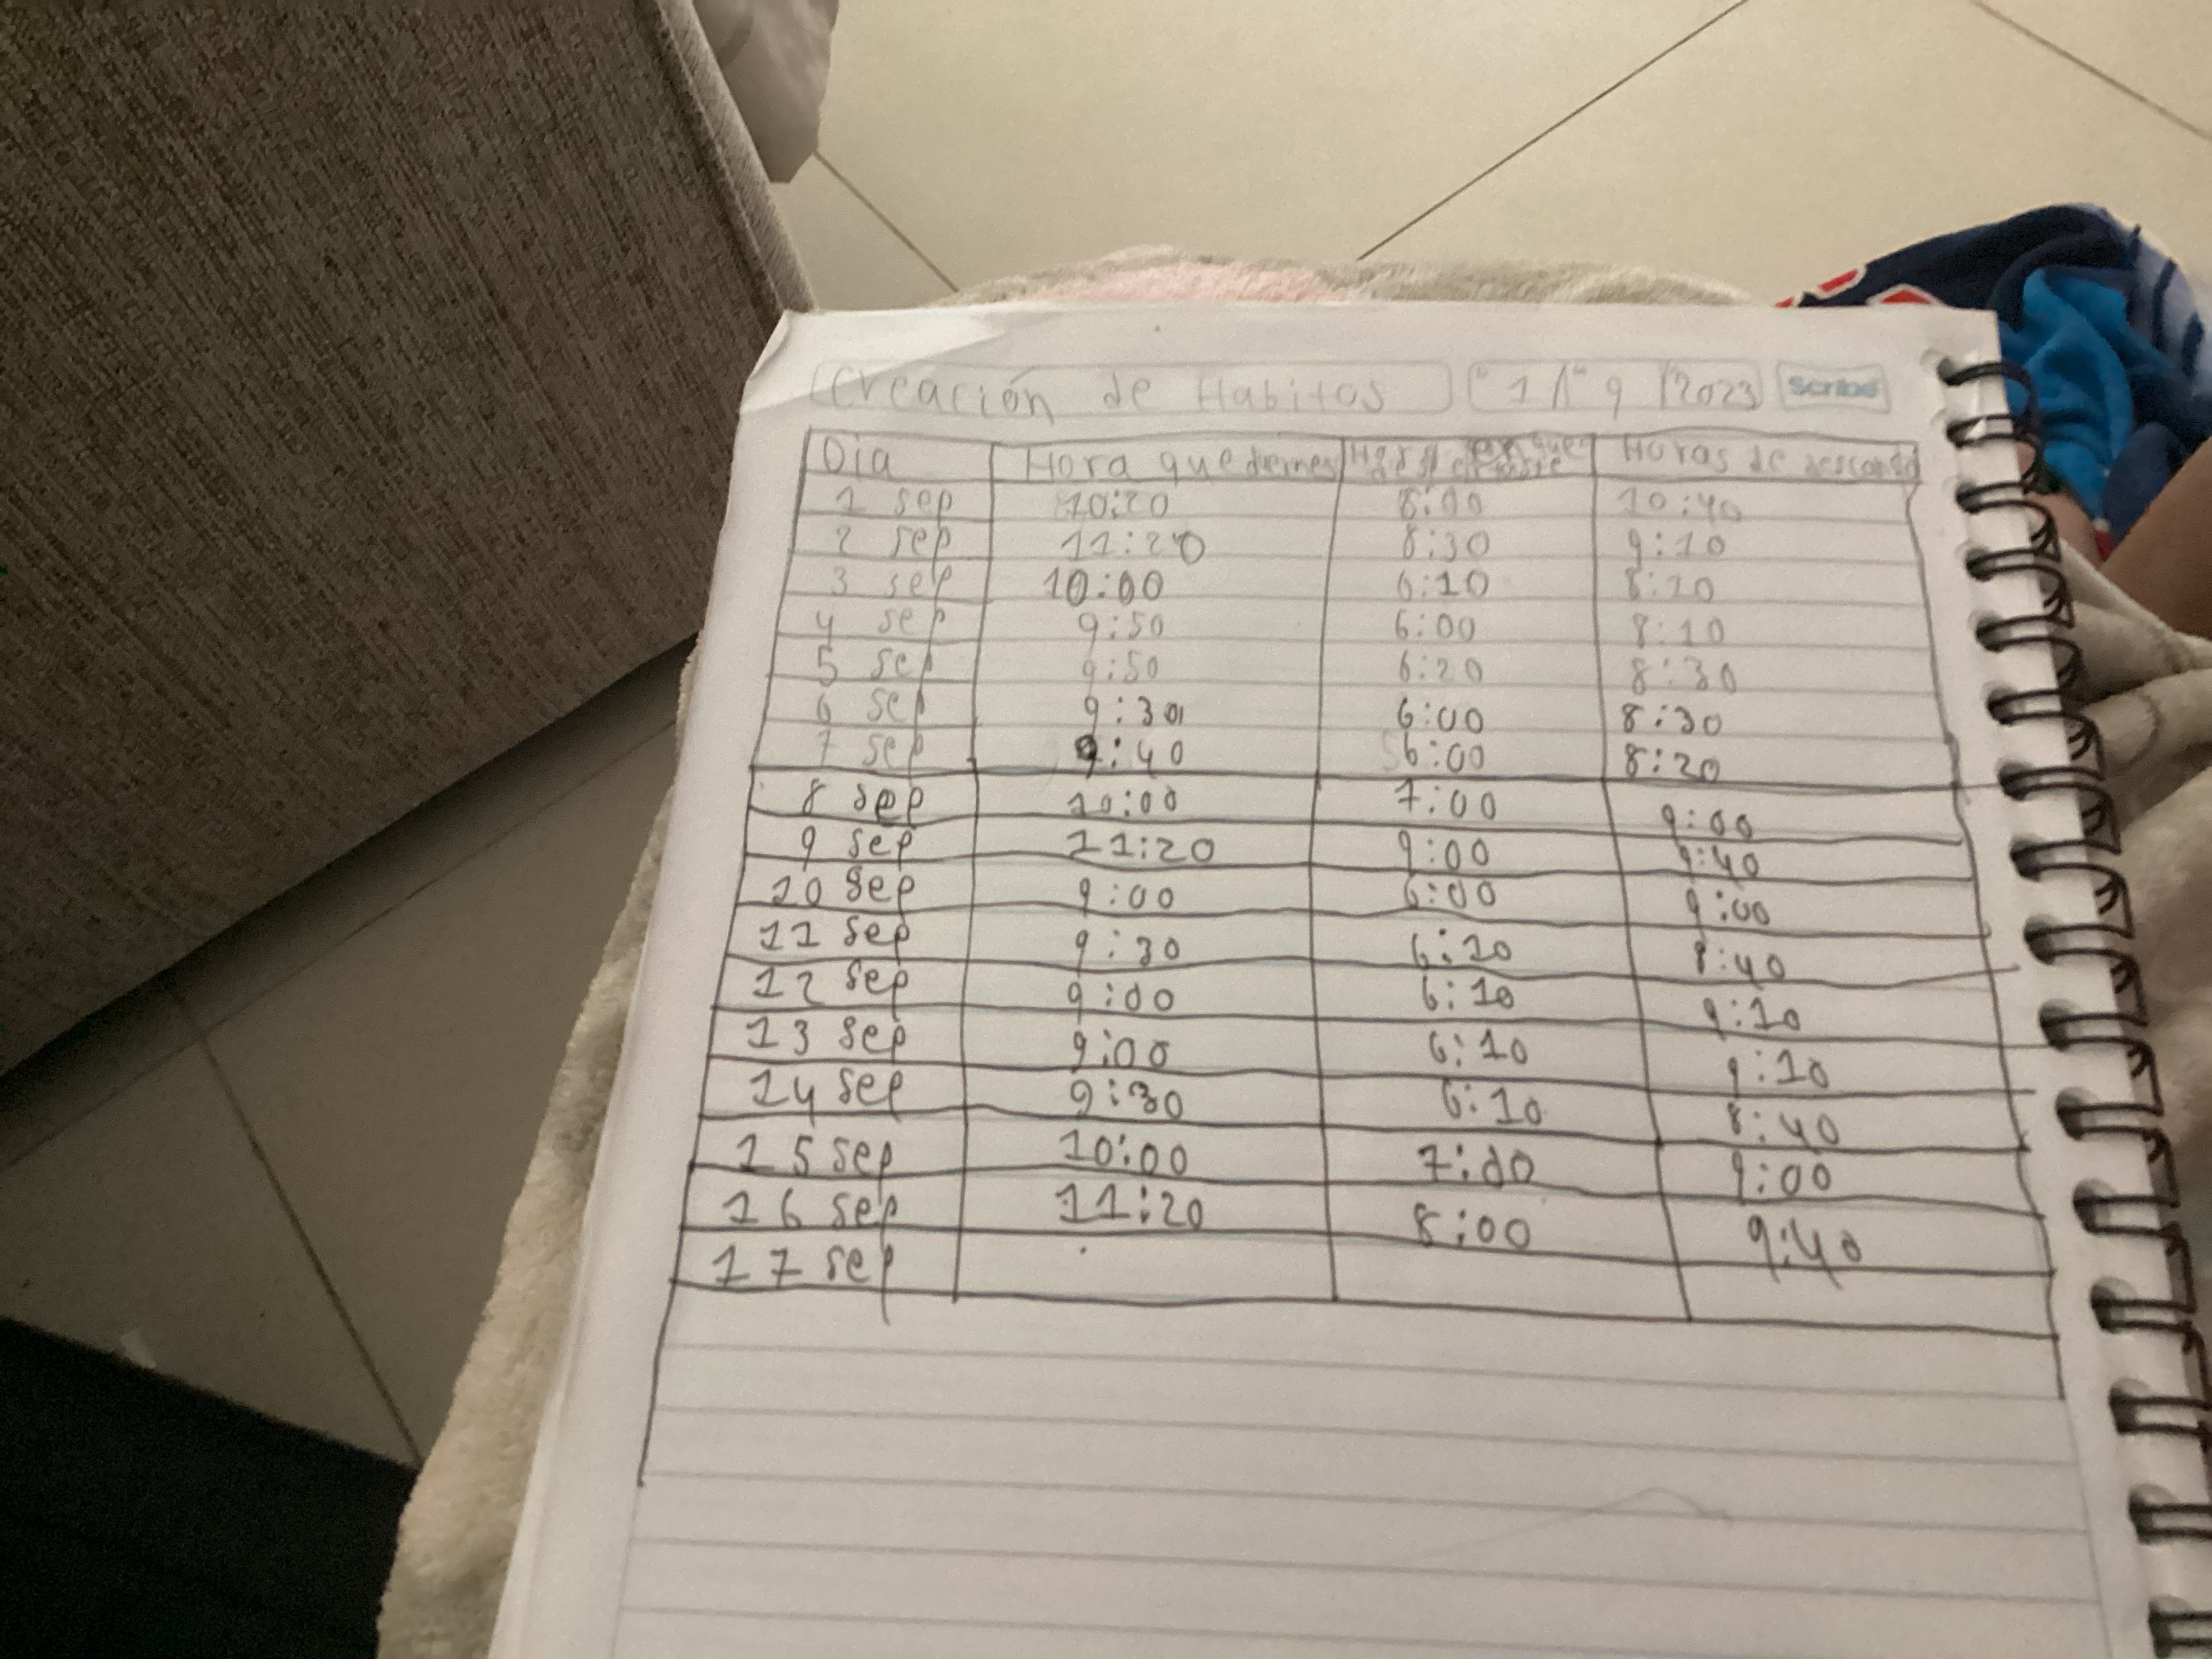 Creación de Habitos 1 / 9 / 2023 Scribe
Dia Hora que duermes Hora en que Horas de descanso
1 sep 10:20 8:00 10:40
2 sep 11:20 8:30 9:10
3 sep 10:00 6:10 8:10
4 sep 9:50 6:00 8:10
5 sep 9:50 6:20 8:30
6 sep 9:30 6:00 8:30
7 sep 9:40 6:00 8:20
8 sep 10:00 7:00 9:00
9 sep 11:20 9:00 9:40
10 sep 9:00 6:00 9:00
11 sep 9:30 6:10 8:40
12 sep 9:00 6:10 9:10
13 sep 9:00 6:10 9:10
14 sep 9:30 6:10 8:40
15 sep 10:00 7:00 9:00
16 sep 11:20 8:00 9:40
17 sep